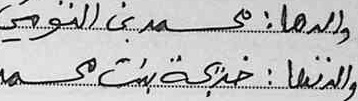 والدها: محمد بن التومي
والدتها: خديجة بنت محمد